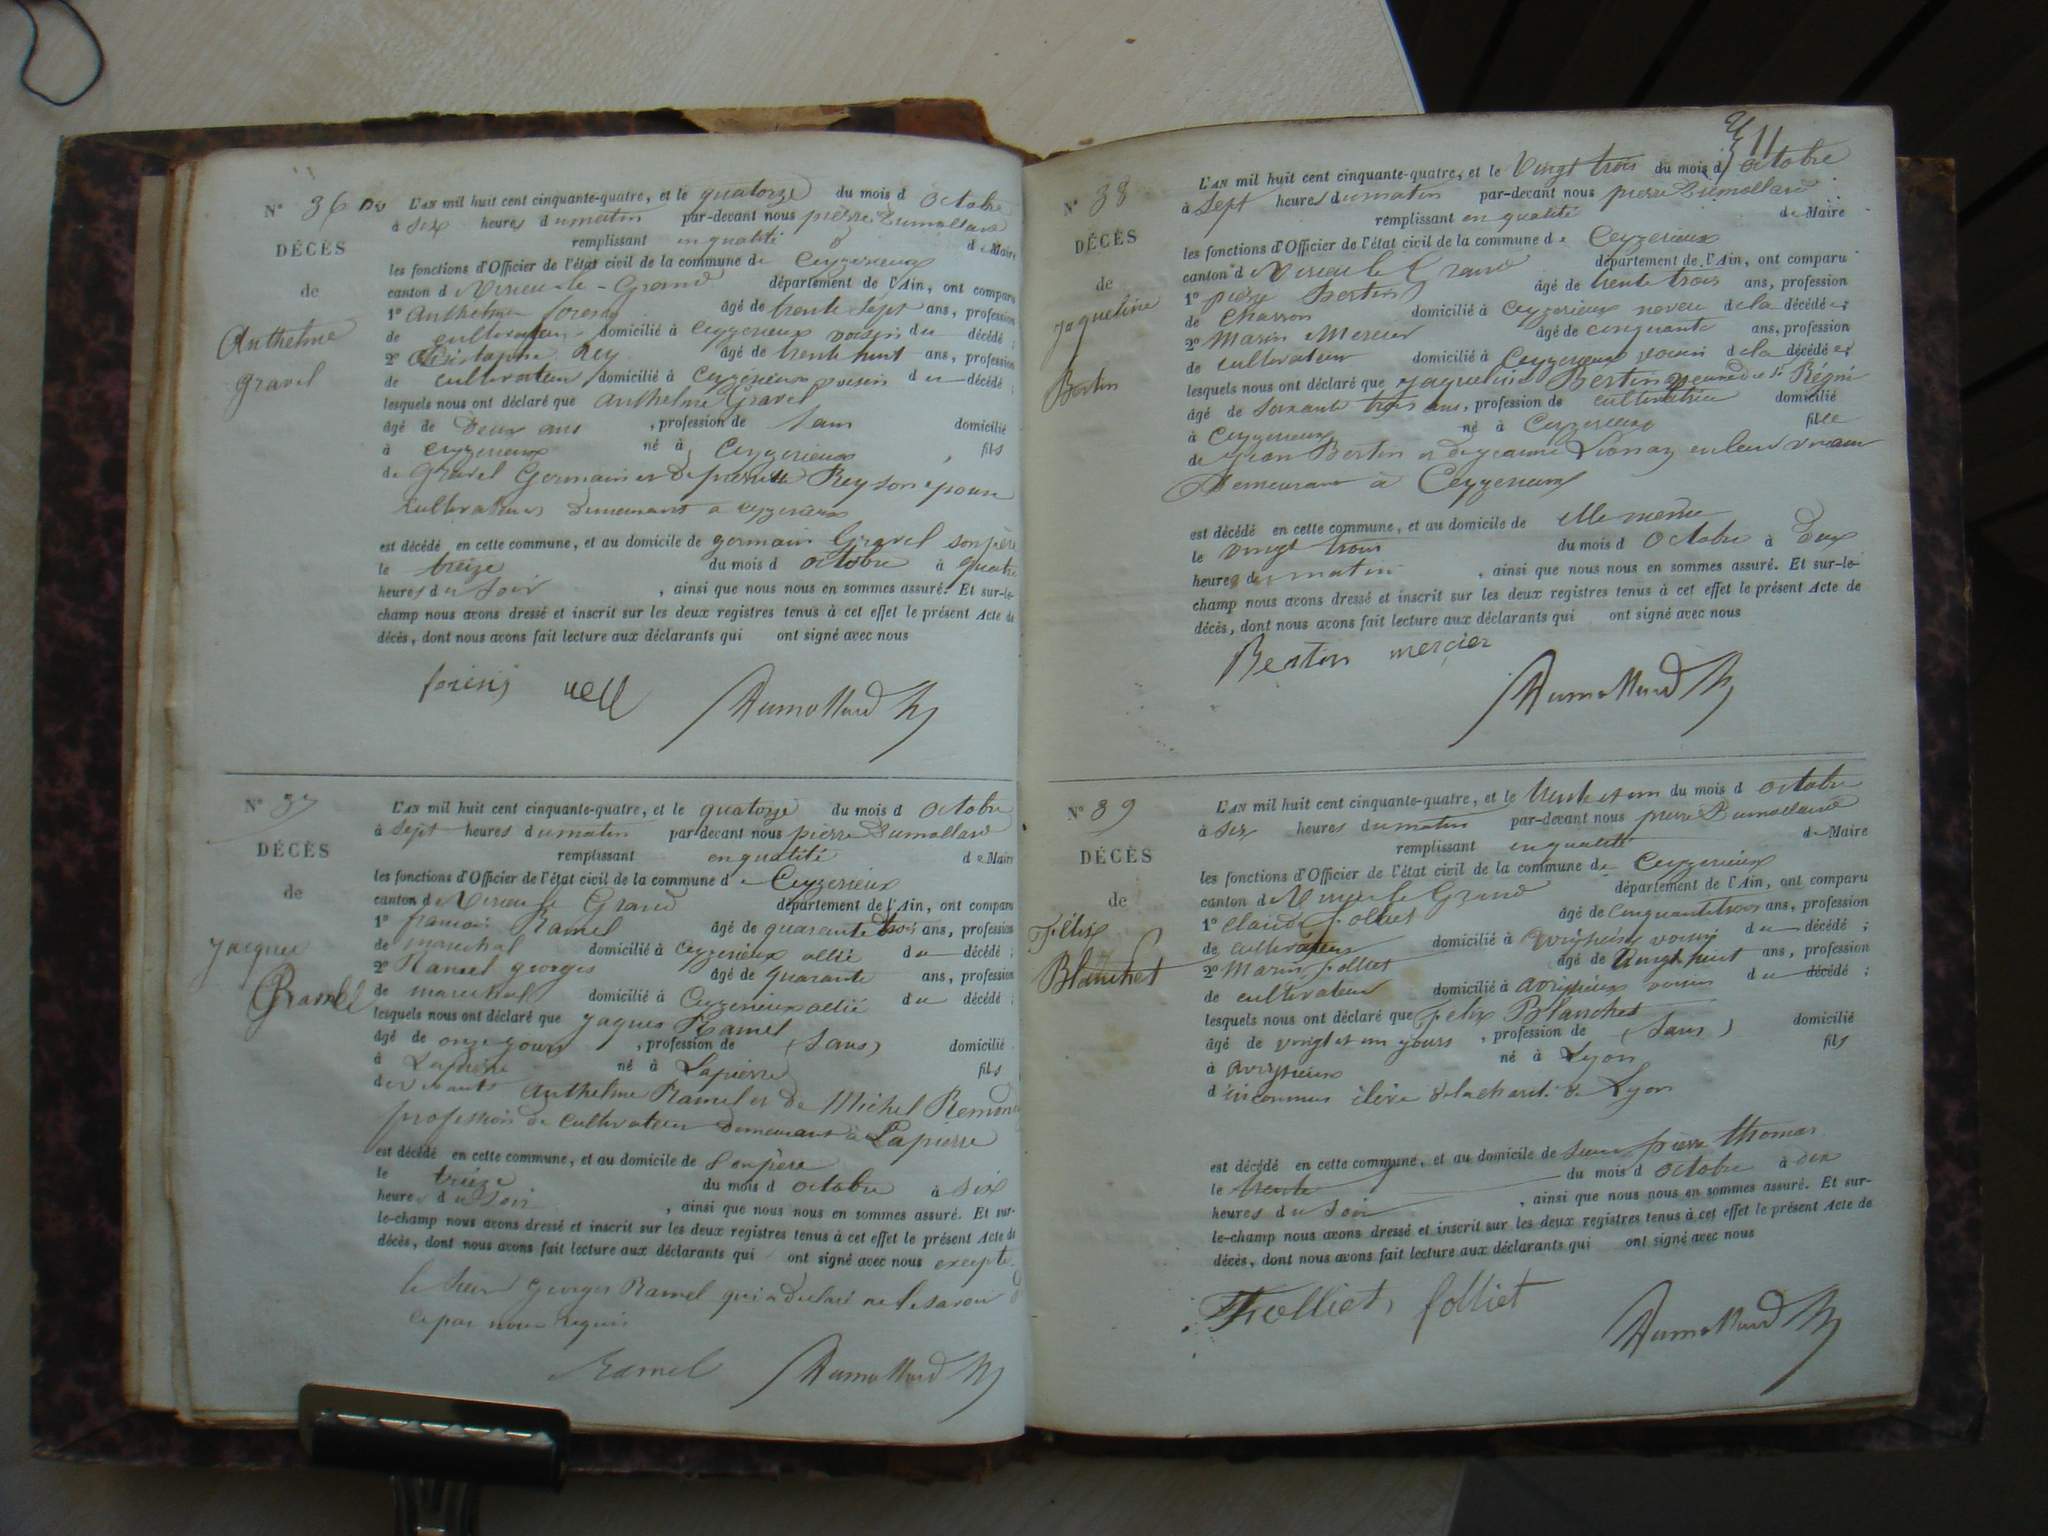 N° 36
DÉCÈS
de
Anthelme
Gravel
L'AN mil huit cent cinquante-quatre, et le quatorze du mois d Octobre
à six heures du matin par-devant nous pierre Dumollard
remplissant en qualité de Maire
les fonctions d'Officier de l'état civil de la commune de Ceyzerieux
canton d Virieu-le-Grand département de l'Ain, ont comparu
1° Anthelme âgé de trente sept ans, profession
de cultivateur domicilié à Ceyzerieux voisin du décédé ;
2° Rey âgé de trente huit ans, profession
de cultivateur domicilié à Ceyzerieux voisin du décédé ;
lesquels nous ont déclaré que Anthelme Gravel
âgé de Deux ans , profession de sans domicilié
à Ceyzerieux né à Ceyzerieux , fils
de Gravel Germain et de pierrette Rey son epouse
cultivateurs Demeurant a Ceyzerieux
est décédé en cette commune, et au domicile de germain Gravel son père
le treize du mois d octobre à quatre
heures du soir , ainsi que nous nous en sommes assuré. Et sur-le-
champ nous avons dressé et inscrit sur les deux registres tenus à cet effet le présent Acte de
décès, dont nous avons fait lecture aux déclarants qui ont signé avec nous
Dumollard
N° 37
DÉCÈS
de
Jacques
Ramel
L'AN mil huit cent cinquante-quatre, et le quatorze du mois d Octobre
à sept heures du matin par-devant nous pierre Dumollard
remplissant en qualité de Maire
les fonctions d'Officier de l'état civil de la commune de Ceyzerieux
canton de Virieu le Grand département de l'Ain, ont comparu
1° francois Ramel âgé de quarante trois ans, profession
de marechal domicilié à Ceyzerieux allié du décédé ;
2° Ramel georges âgé de quarante ans, profession
de marechal domicilié à Ceyzerieux allié du décédé ;
lesquels nous ont déclaré que jaques Ramel
âgé de onze jours , profession de (sans) domicilié
à Lapierre né à Lapierre fils
de vivants Anthelme Ramel et de Michel Remond
profession de cultivateur Demeurant à Lapierre
est décédé en cette commune, et au domicile de son père
le treize du mois d octobre à six
heures du soir , ainsi que nous nous en sommes assuré. Et sur-
le-champ nous avons dressé et inscrit sur les deux registres tenus à cet effet le présent Acte de
décès, dont nous avons fait lecture aux déclarants qui ont signé avec nous excepté
le sieur Georges Ramel qui a declaré ne le savoir
ce par nous requis
Ramel Dumollard
11
N° 38
DÉCÈS
de
jaqueline
Bertin
L'AN mil huit cent cinquante-quatre, et le Vingt trois du mois d octobre
à sept heures du matin par-devant nous pierre Dumollard
remplissant en qualité de Maire
les fonctions d'Officier de l'état civil de la commune de Ceyzerieux
canton d Virieu le Grand département de l'Ain, ont comparu
1° pierre Bertin âgé de trente trois ans, profession
de Charron domicilié à Ceyzerieux neveu de la décédée ;
2° Marin Mercier âgé de cinquante ans, profession
de cultivateur domicilié à Ceyzerieux voisin de la décédée ;
lesquels nous ont déclaré que jaqueline Bertin
âgé de soixante trois ans, profession de cultivatrice domicilié
à Ceyzerieux né à Ceyzerieux fille
de jean Bertin et de jeanne en leur vivant
Demeurant à Ceyzerieux
est décédé en cette commune, et au domicile de elle meme
le vingt trois du mois d Octobre à deux
heures du matin , ainsi que nous nous en sommes assuré. Et sur-le-
champ nous avons dressé et inscrit sur les deux registres tenus à cet effet le présent Acte de
décès, dont nous avons fait lecture aux déclarants qui ont signé avec nous
Bertin mercier
Dumollard
N° 39
DÉCÈS
de
Félix
Blanchet
L'AN mil huit cent cinquante-quatre, et le trente et un du mois d octobre
à six heures du matin par-devant nous pierre Dumollard
remplissant en qualité de Maire
les fonctions d'Officier de l'état civil de la commune de Ceyzerieux
canton de Virieu le Grand département de l'Ain, ont comparu
1° Claude folliet âgé de cinquante trois ans, profession
de cultivateur domicilié à avrissieux voisin du décédé ;
2° Marin folliet âgé de vingt huit ans, profession
de cultivateur domicilié à avrissieux voisin du décédé ;
lesquels nous ont déclaré que felix Blanchet
âgé de vingt et un jours , profession de (sans) domicilié
à avrissieux né à Lyon fils
d'inconnus élève de la charité de Lyon
est décédé en cette commune, et au domicile de sieur pierre thomas
le trente du mois d octobre à dix
heures du soir , ainsi que nous nous en sommes assuré. Et sur-
le-champ nous avons dressé et inscrit sur les deux registres tenus à cet effet le présent Acte de
décès, dont nous avons fait lecture aux déclarants qui ont signé avec nous
folliet
Dumollard